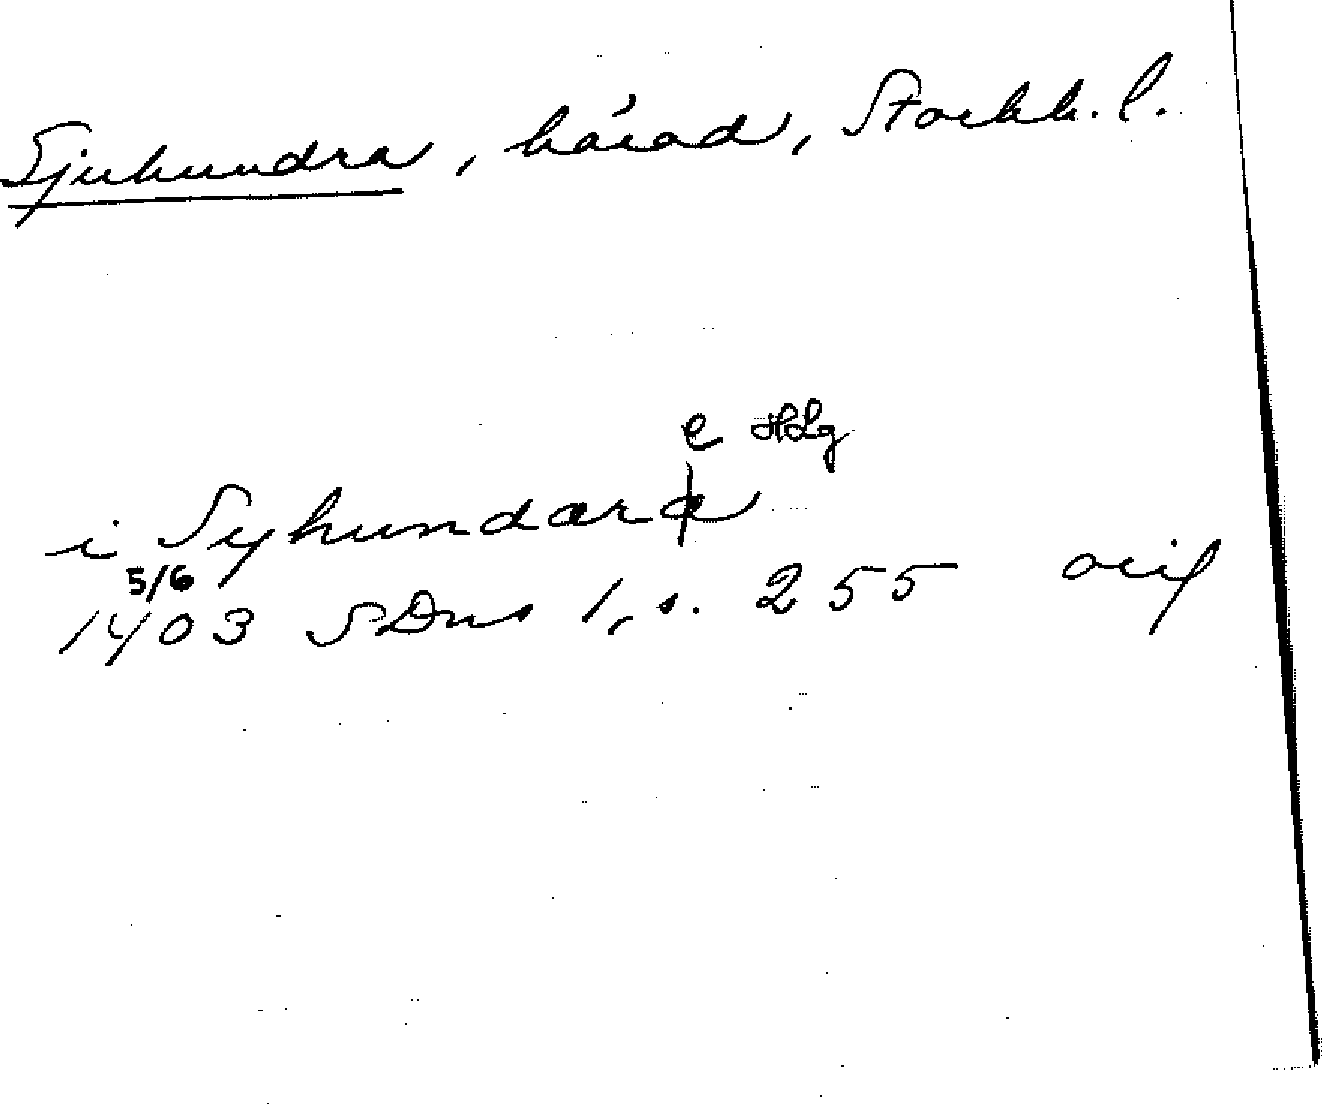 Sjuhundra, härad, Stockh. l.
e HLg
i Syhundara
5/6
1403 SDns 1, s. 255 orig